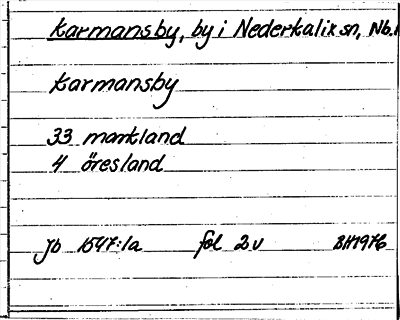 Karmansby, by i Nederkalix sn, Nb.
Karmansby
33 markland
4 öresland
Jb 1547:1a fol 2v BH1976